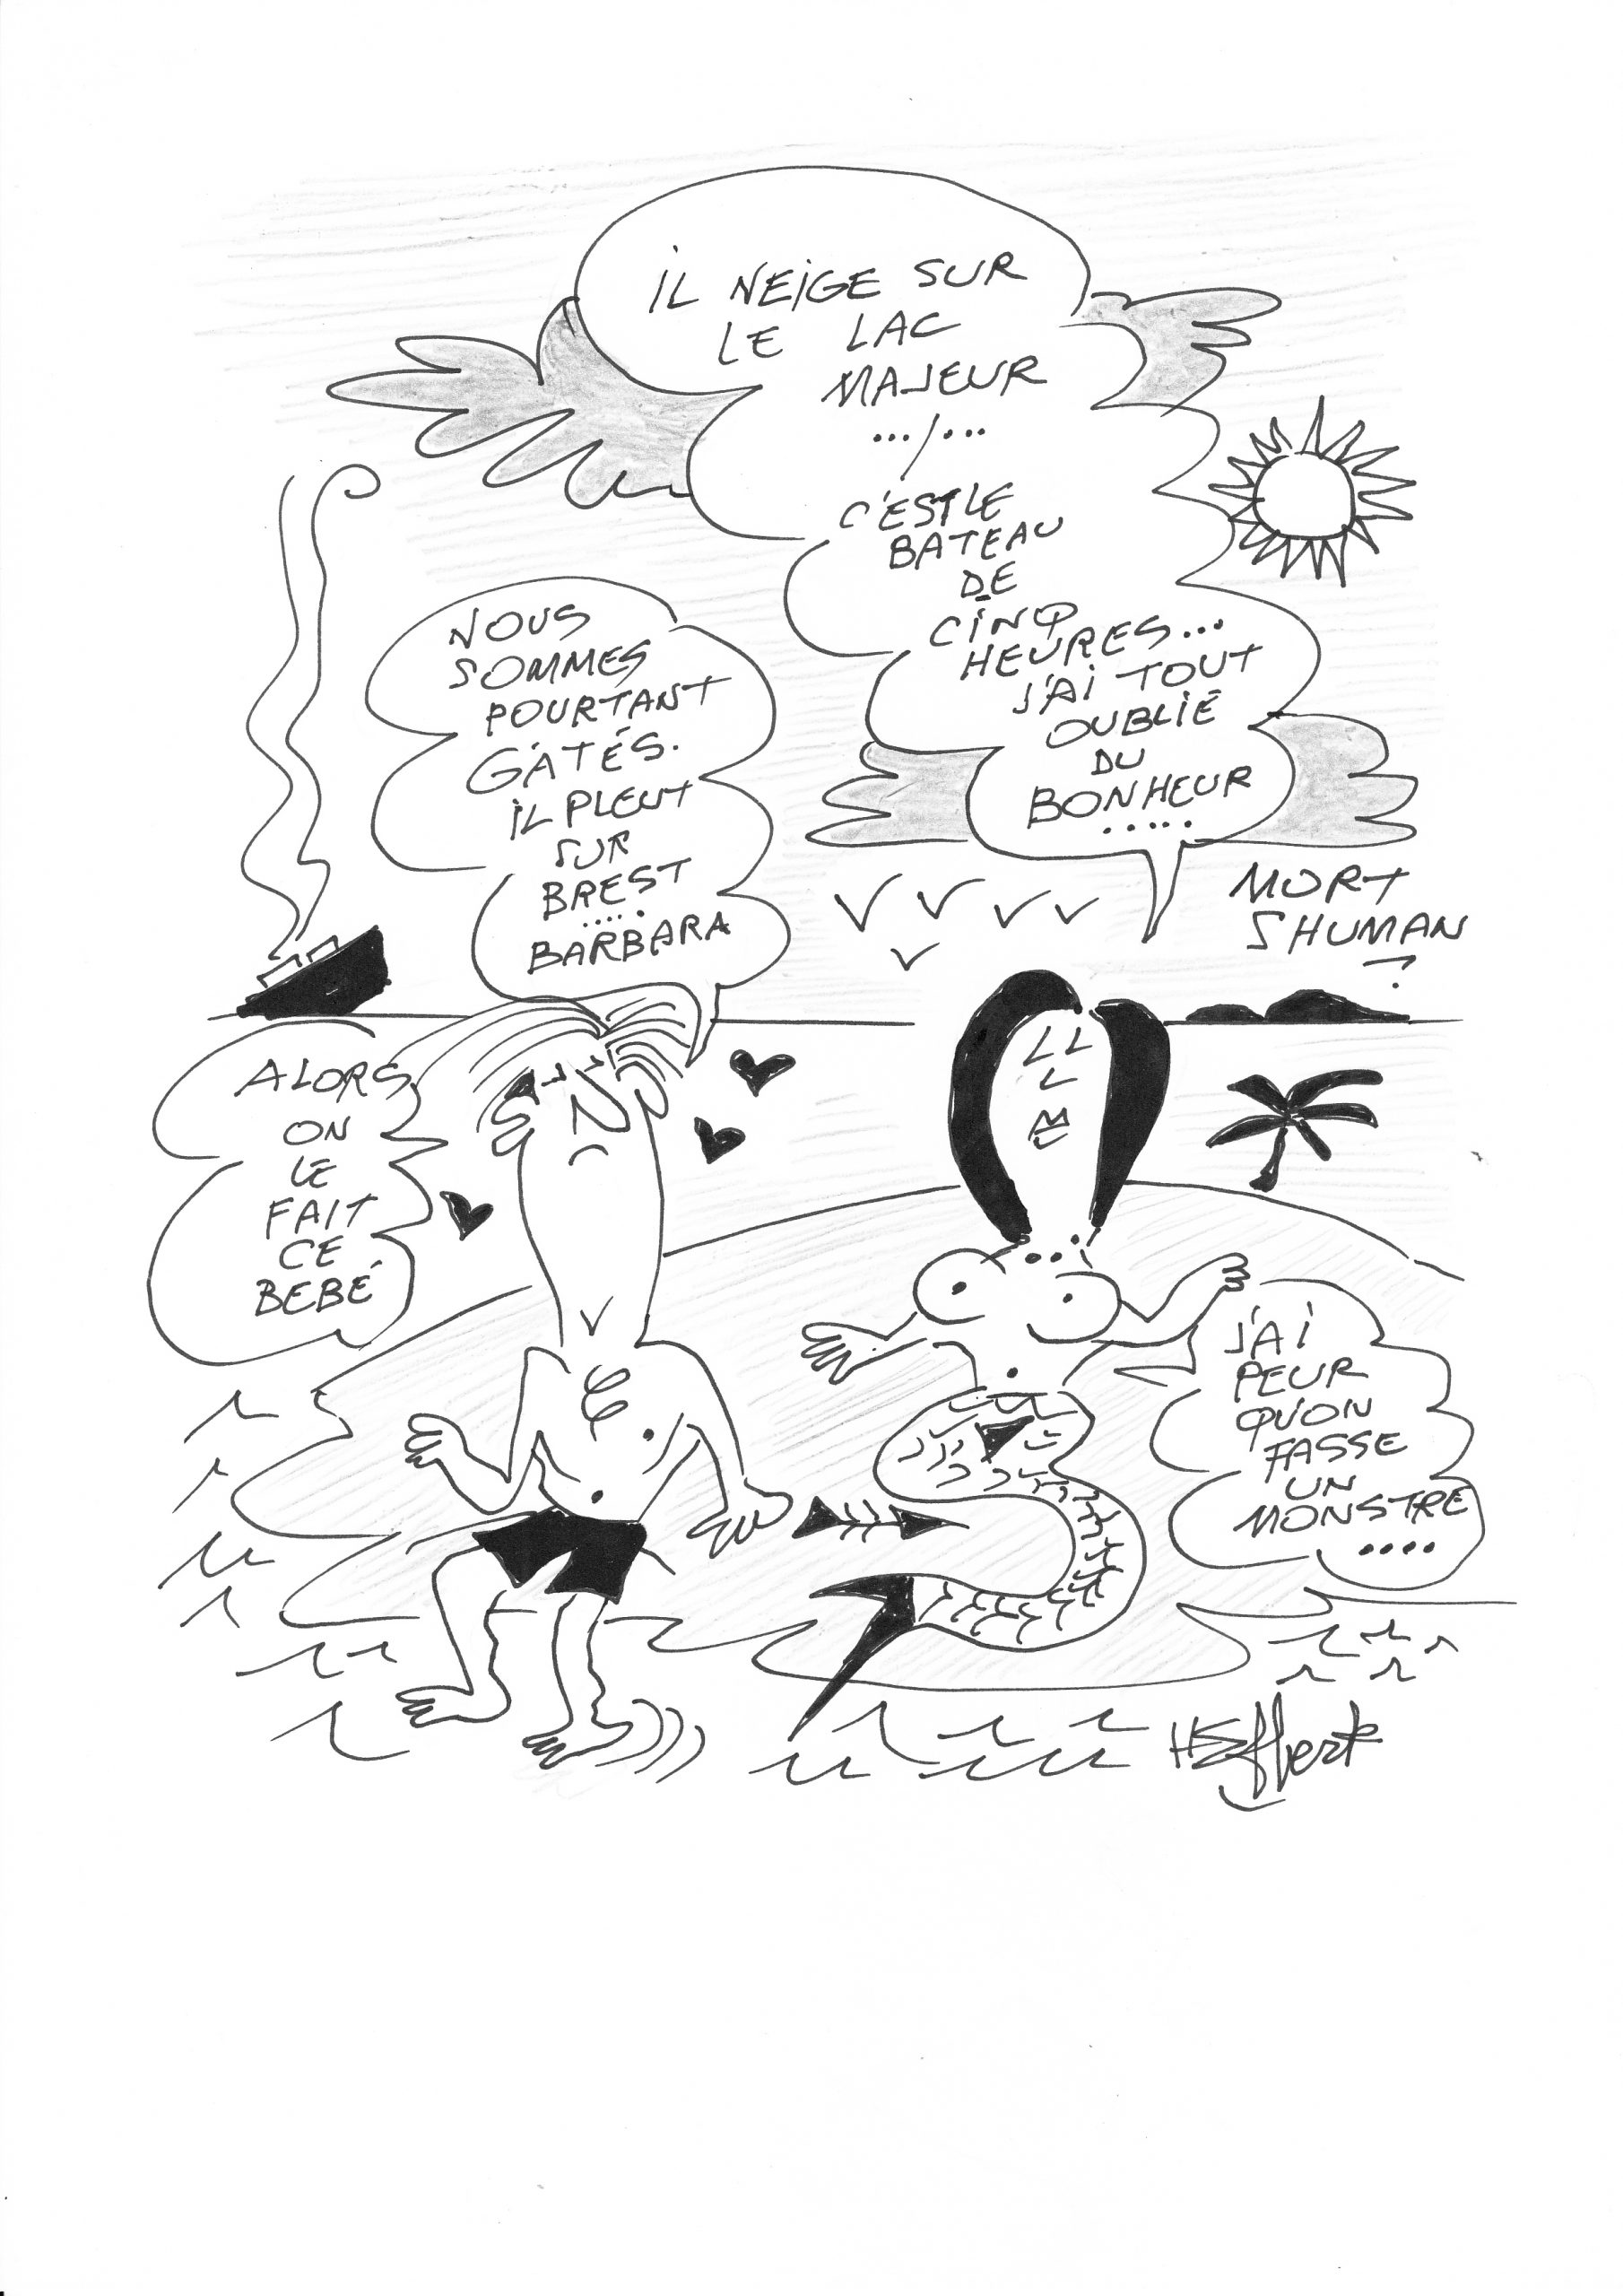 IL NEIGE SUR
LE LAC
MAJEUR
.../...
C'EST LE
BATEAU
DE
CINQ
HEURES...
J'AI TOUT
OUBLIÉ
DU
BONHEUR
.....
MORT
SHUMAN
NOUS
SOMMES
POURTANT
GÁTÉS.
IL PLEUT
SUR
BREST
....
BARBARA
ALORS
ON
LE
FAIT
CE
BEBÉ
J'AI
PEUR
QU'ON
FASSE
UN
MONSTRE
....